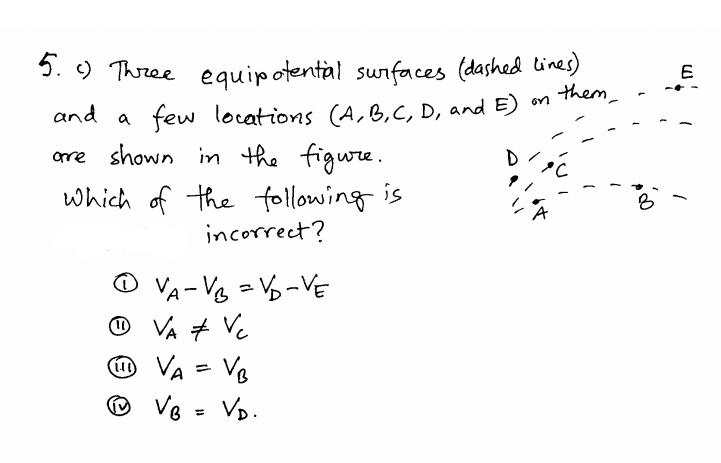 5. c) Three equipotential surfaces (dashed lines)
and a few locations (A,B,C, D, and E) on them
are shown in the figure.
Which of the following is
incorrect?
E
D
C
A
B
(i) V_A - V_B = V_D - V_E
(ii) V_A ≠ V_C
(iii) V_A = V_B
(iv) V_B = V_D.